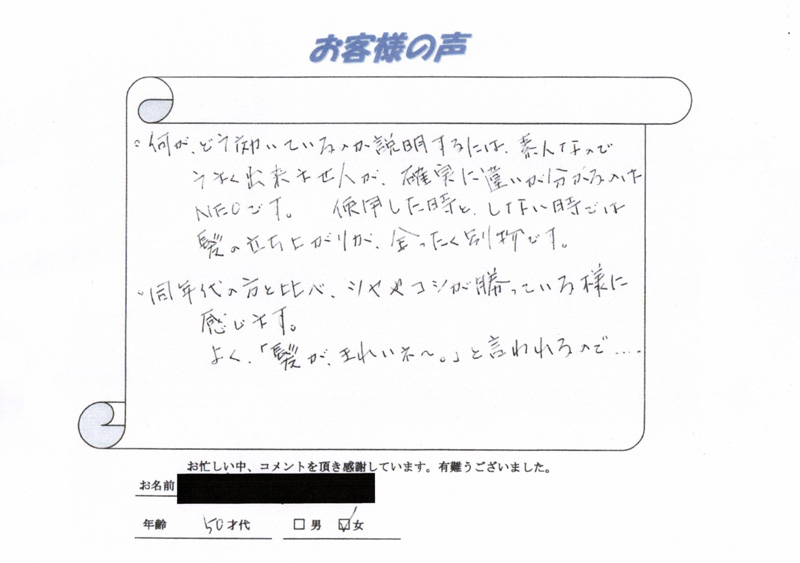 お客様の声
・何が、どう効いているのか説明するには、素人なので
うまく出来ませんが、確実に違いが分かるのは
NEOです。 使用した時と、しない時では
髪の立ち上がりが、全ったく別物です。
・同年代の方と比べ、ツヤやコシが勝っている様に
感じます。
よく、「髪が、きれいネ〜。」と言われるので‥‥
お忙しい中、コメントを頂き感謝しています。有難うございました。
お名前
年齢 50才代 □男 ☑女